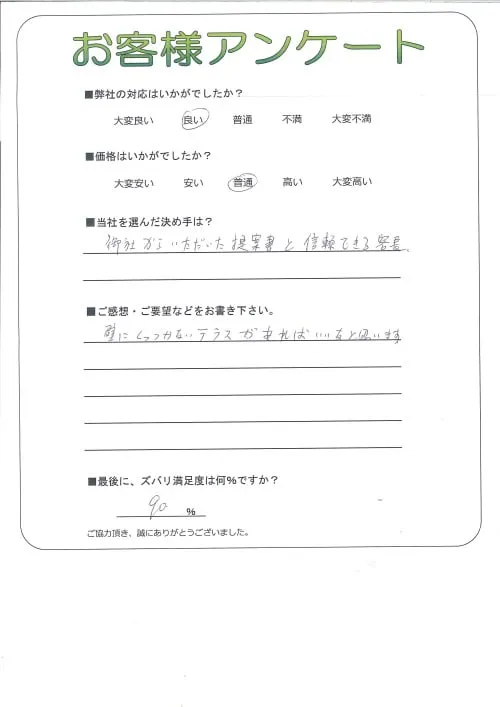 お客様アンケート
■弊社の対応はいかがでしたか？
大変良い 良い 普通 不満 大変不満
■価格はいかがでしたか？
大変安い 安い 普通 高い 大変高い
■当社を選んだ決め手は？
御社からいただいた提案書と信頼できる
■ご感想・ご要望などをお書き下さい。
壁にくっつかないテラスがあればいいなと思います
■最後に、ズバリ満足度は何%ですか？
90 %
ご協力頂き、誠にありがとうございました。